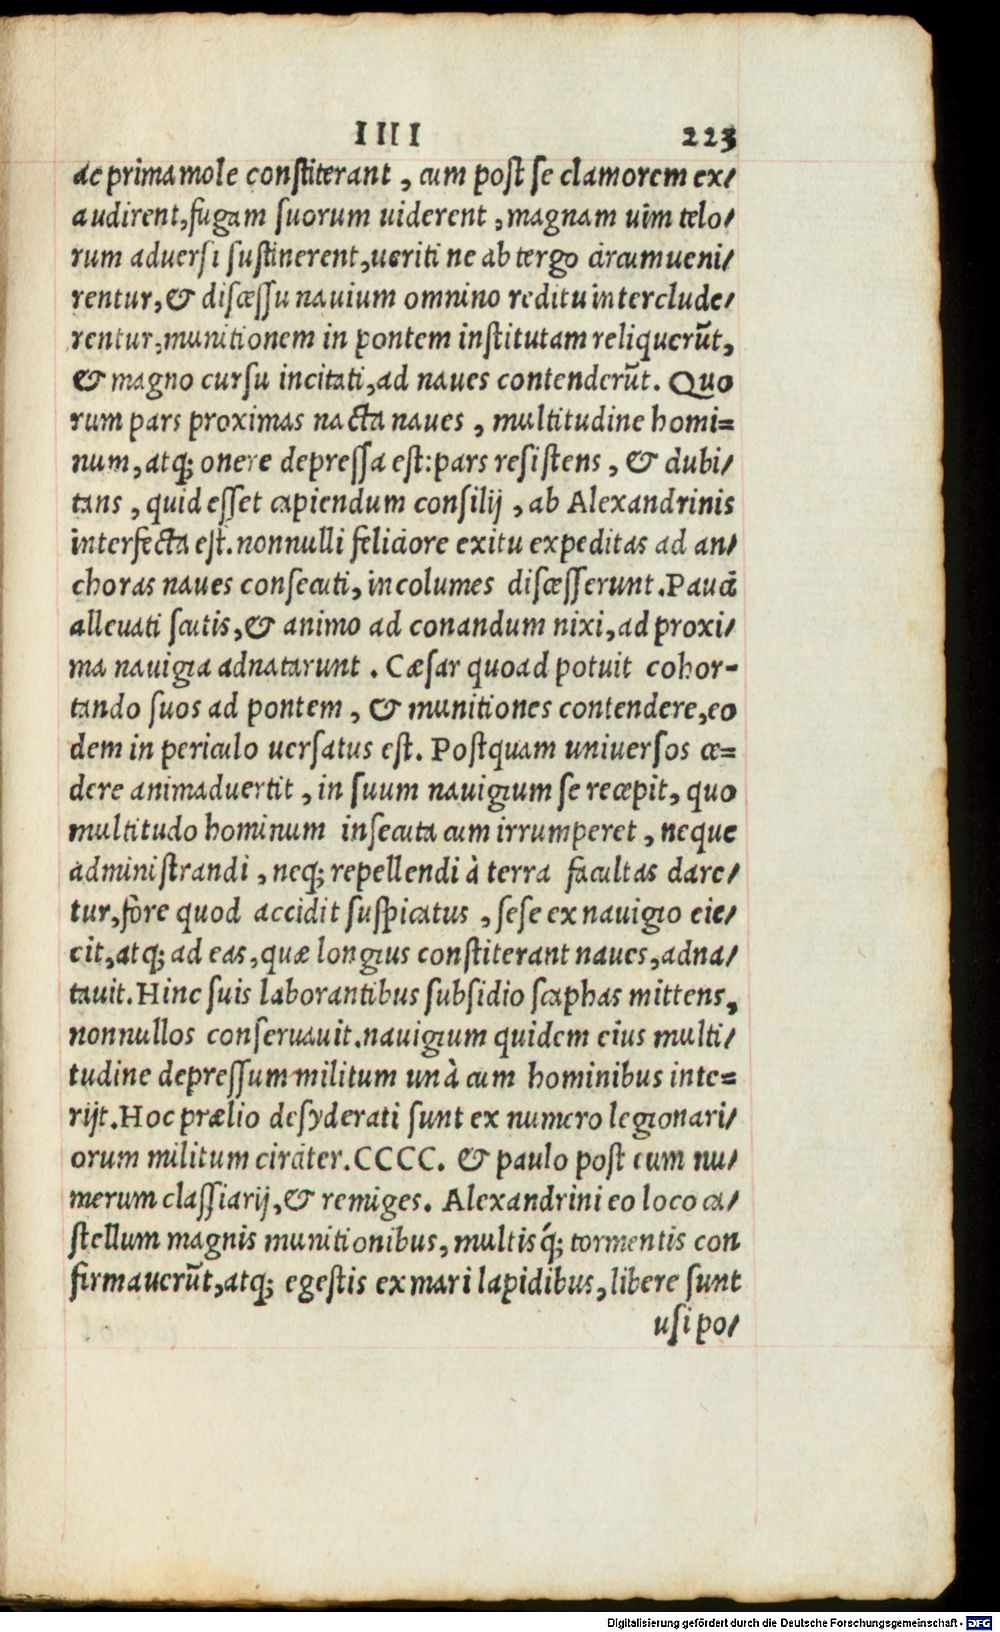 IIII 223
ac prima mole constiterant, cum post se clamorem ex/
audirent, fugam suorum uiderent, magnam uim telo/
rum aduersi sustinerent, ueriti ne ab tergo circumueni/
rentur, & discessu nauium omnino reditu interclude/
rentur, munitionem in pontem institutam reliquerūt,
& magno cursu incitati, ad naues contenderūt. Quo
rum pars proximas nacta naues, multitudine homi=
num, atq; onere depressa est: pars resistens, & dubi/
tans, quid esset capiendum consilij, ab Alexandrinis
interfecta est. nonnulli feliciore exitu expeditas ad an/
choras naues consecuti, incolumes discesserunt. Pauci
alleuati scutis, & animo ad conandum nixi, ad proxi/
ma nauigia adnatarunt. Cæsar quoad potuit cohor-
tando suos ad pontem, & munitiones contendere, eo
dem in periculo uersatus est. Postquam uniuersos ce=
dere animaduertit, in suum nauigium se recepit, quo
multitudo hominum insecuta cum irrumperet, neque
administrandi, neq; repellendi à terra facultas dare/
tur, fore quod accidit suspicatus, sese ex nauigio eie/
cit, atq; ad eas, quæ longius constiterant naues, adna/
tauit. Hinc suis laborantibus subsidio scaphas mittens,
nonnullos conseruauit. nauigium quidem eius multi/
tudine depressum militum unà cum hominibus inte=
rijt. Hoc prælio desyderati sunt ex numero legionari/
orum militum circiter. CCCC. & paulo post eum nu/
merum classiarij, & remiges. Alexandrini eo loco ca/
stellum magnis munitionibus, multisq́; tormentis con
firmauerūt, atq; egestis ex mari lapidibus, libere sunt
usi po/
Digitalisierung gefördert durch die Deutsche Forschungsgemeinschaft - DFG